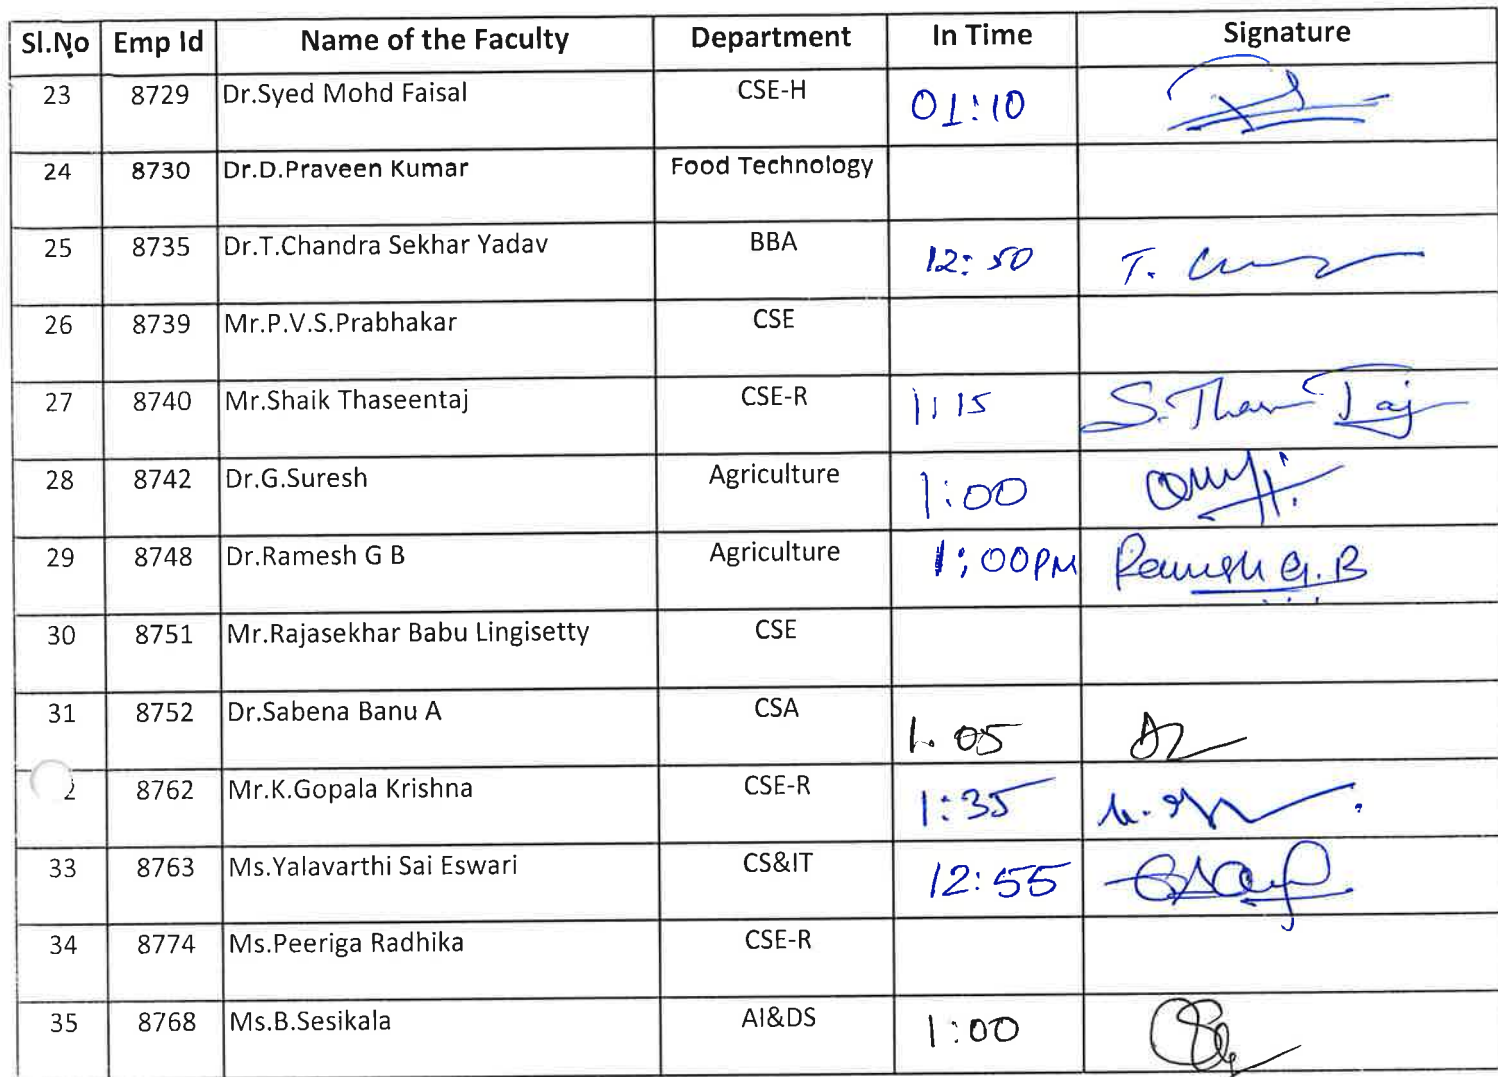 Sl.No Emp Id Name of the Faculty Department In Time Signature
23 8729 Dr.Syed Mohd Faisal CSE-H 01:10
24 8730 Dr.D.Praveen Kumar Food Technology
25 8735 Dr.T.Chandra Sekhar Yadav BBA 12:50 T.
26 8739 Mr.P.V.S.Prabhakar CSE
27 8740 Mr.Shaik Thaseentaj CSE-R 1:15 S. Taj
28 8742 Dr.G.Suresh Agriculture 1:00
29 8748 Dr.Ramesh G B Agriculture 1:00PM Ramesh G.B
30 8751 Mr.Rajasekhar Babu Lingisetty CSE
31 8752 Dr.Sabena Banu A CSA 1.05
2 8762 Mr.K.Gopala Krishna CSE-R 1:35
33 8763 Ms.Yalavarthi Sai Eswari CS&IT 12:55
34 8774 Ms.Peeriga Radhika CSE-R
35 8768 Ms.B.Sesikala AI&DS 1:00